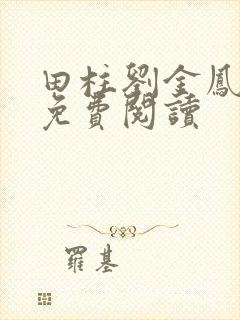 田柱劉金鳳
免費閱讀
羅基